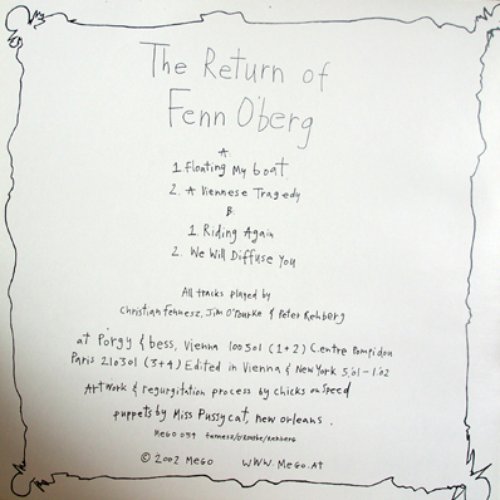 The Return of
Fenn O'berg
A
1. Floating My boat
2. A Viennese Tragedy
B.
1. Riding Again
2. We Will Diffuse You
All tracks played by
Christian Fennesz, Jim O'Rourke & Peter Rehberg
at Porgy & bess, Vienna 100301 (1+2) Centre Pompidou
Paris 210301 (3+4) Edited in Vienna & New York 5.'01-1.'02
Artwork & regurgitation process by chicks on Speed
puppets by Miss Pussycat, new orleans.
MEGO 054 fennesz/o'rourke/rehberg
© 2002 MEGO WWW.MEGO.AT